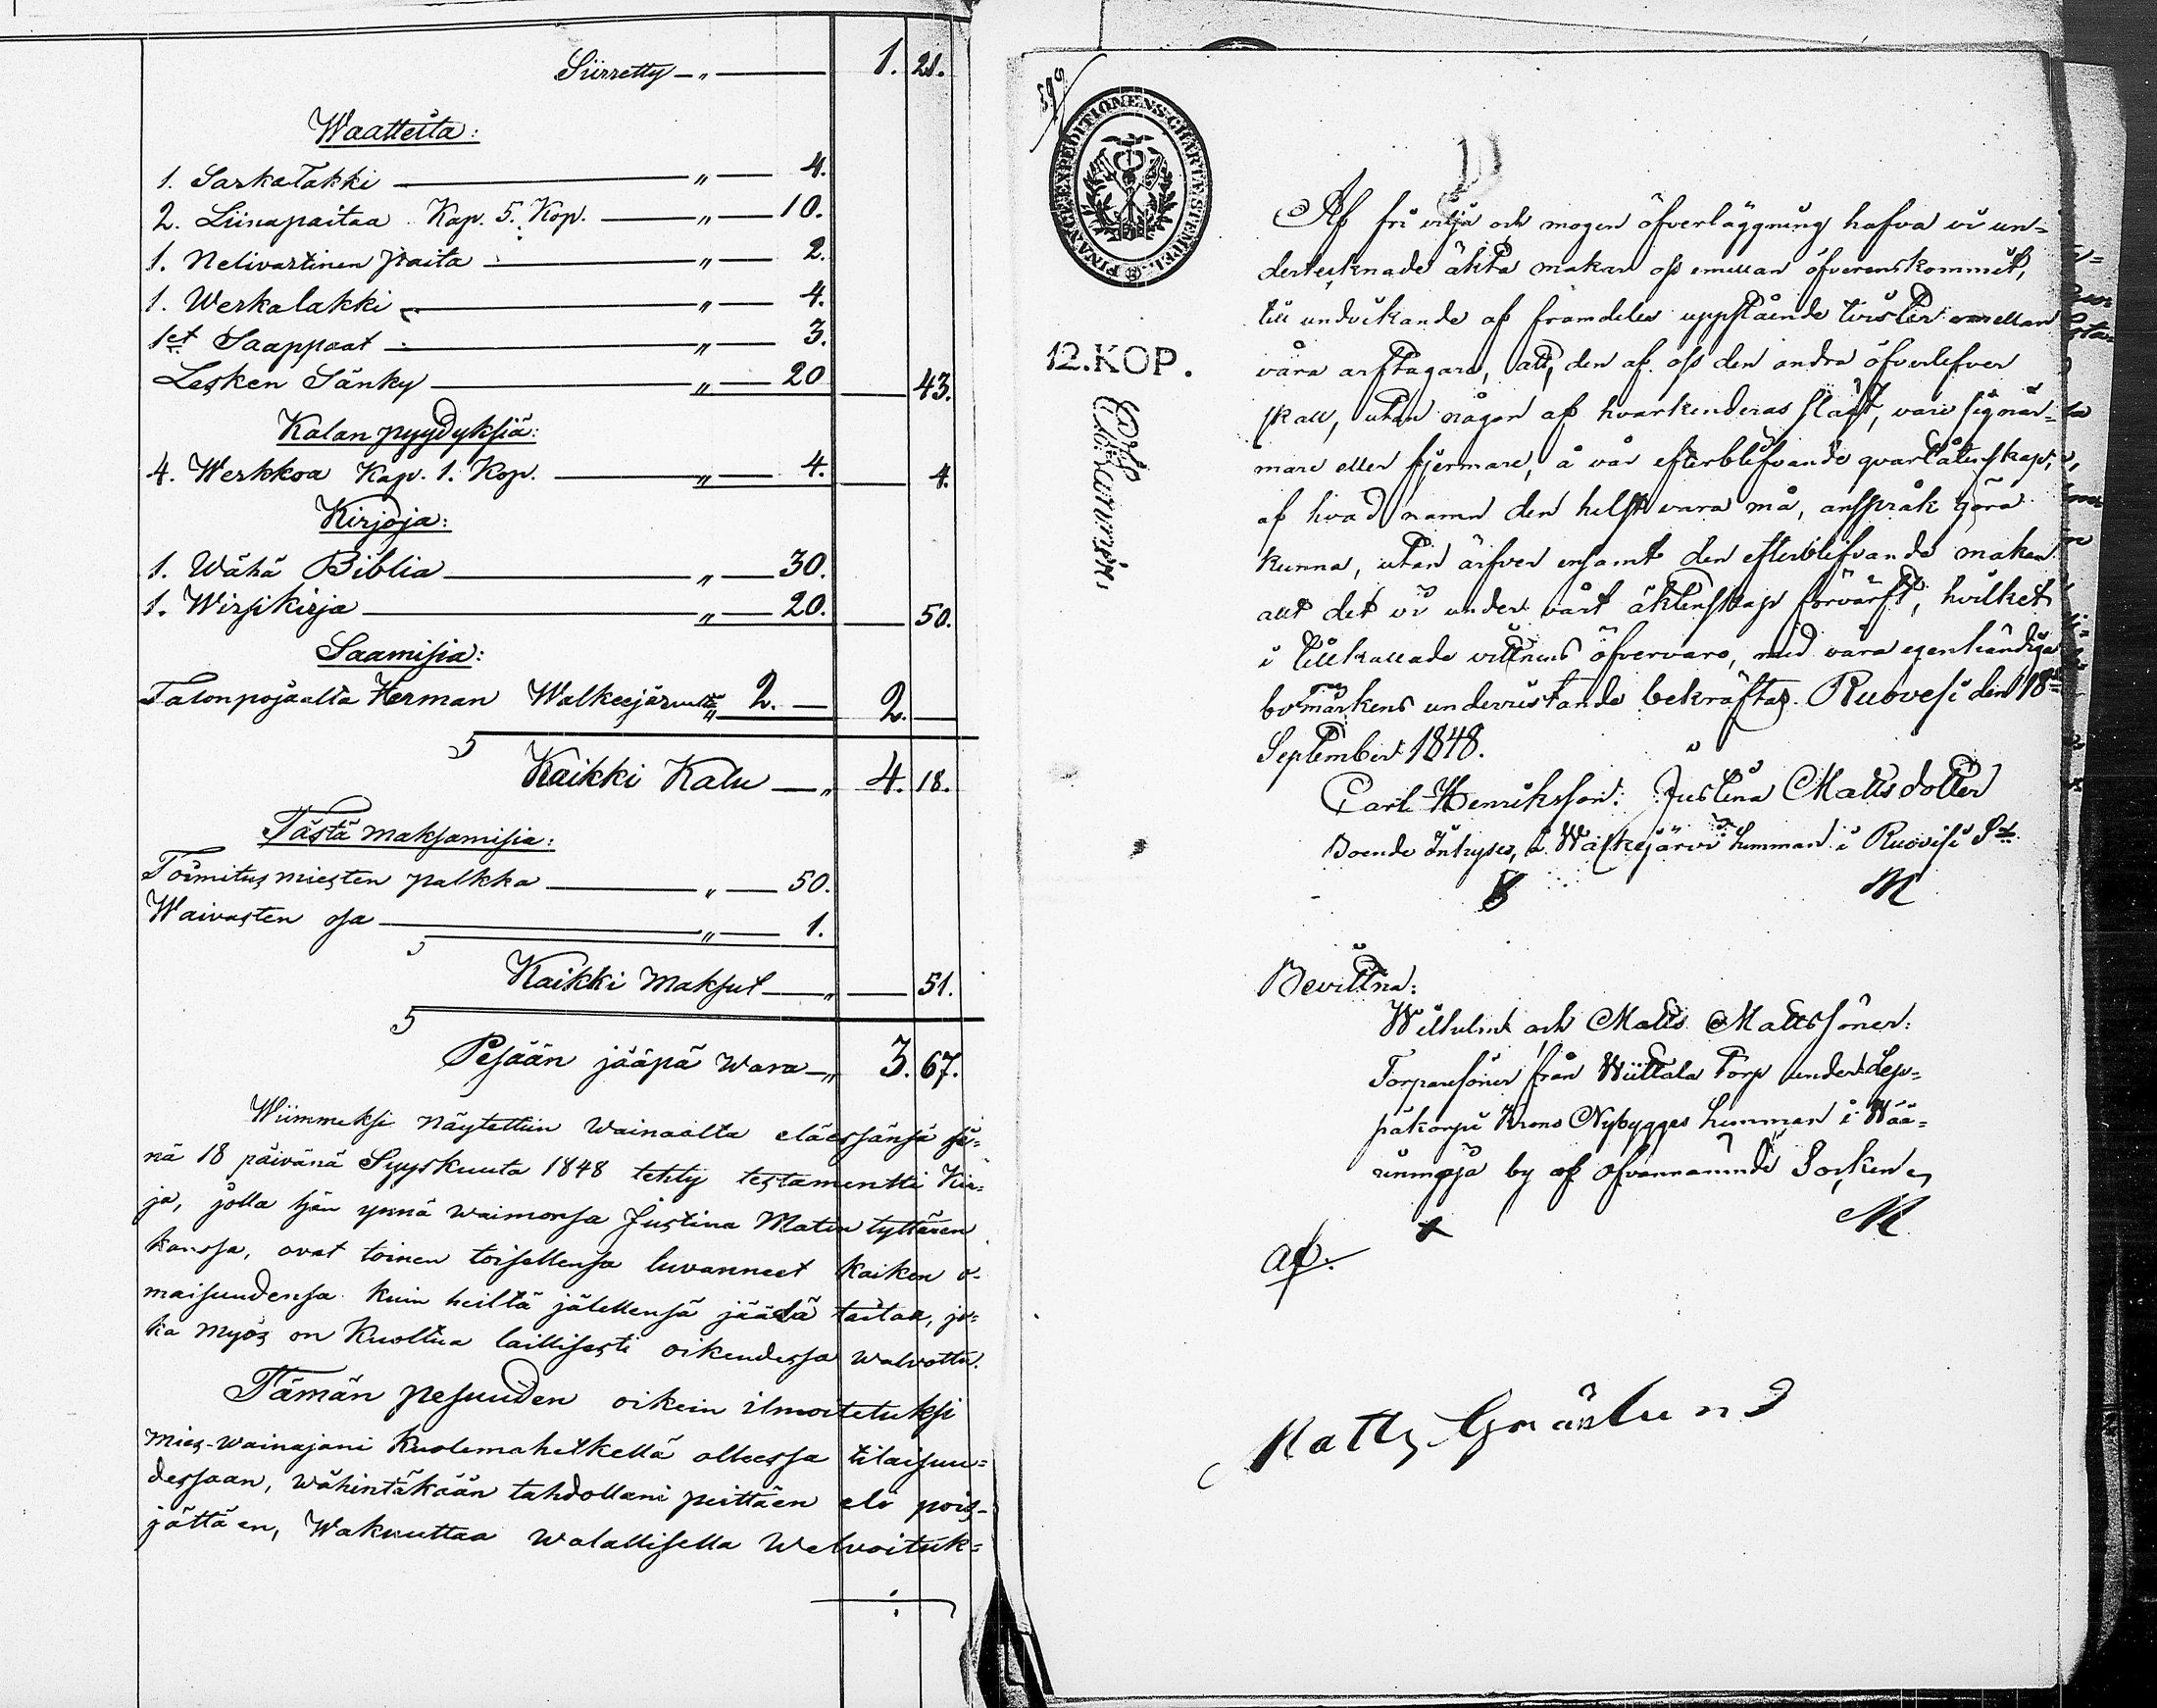 Siirretty — „ — 1. 21.
Waatteita:
1. Sarkatakki — „ — 4.
2. Liinapaitaa Kap. 5. Kop. — „ — 10.
1. Nelivartinen paita — „ — 2.
1. Werkalakki — „ — 4.
1et Saappaat — „ — 3.
Lesken Sänky — „ — 20 — 43.
Kalan pyydyksiä:
4. Werkkoa Kap. 1. Kop. — „ — 4. — 4.
Kirjoja:
1. Wähä Biblia — „ — 30.
1. Wirsikirja — „ — 20. — 50.
Saamisia:
Talonpojaalta Herman Walkeejärveltä „ 2. — 2. —
Kaikki Kalu — „ 4. 18.
Tästä maksamisia:
Toimitus miesten palkka — „ — 50.
Waivasten osa — „ — 1.
Kaikki Maksut — „ — 51.
Pesään jääpä wara — „ 3. 67.
Wiimmeksi näytettiin Wainaalta eläessänsä si=
nä 18 päivänä Syyskuuta 1848 tehty testamentti Kir=
ja, jolla hän ynnä waimonsa Justina Matin tyttären
kanssa, ovat toinen toisellensa luvanneet kaiken o=
maisuudensa kuin heiltä jälellensä jäädä taitaa, jo=
ka myös on Kuoltua laillisesti oikeudessa walvottu.
Tämän pesuuden oikein ilmoitetuksi
mies-wainajani Kuolemahetkellä olleessa tilaisuu=
dessaan, wähintäkään tahdollani peittäen eli pois-
jättäen, Wakuuttaa walallisella Welvoituk=
FINANCEEXPEDITIONENS CHARTÆSTEMPEL
12. KOP.
Af fri vilja och mogen öfverläggning hafva vi un=
dertecknade äkta makar oss emellan öfverenskommit,
till undvikande af framdeles uppstående tvister emellan
våra arftagare, att, den af oss den andra öfverlefver
skall, utan någon af hvarkenderas slägt, vare sig när=
mare eller fjermare, å vår efterblifvande qvarlåtenskap,
af hvad namn den helst vara må, anspråk göra
kunna, utan ärfver ensamt den efterblifvande makan
allt det vi under vårt äktenskap förvärft, hvilket
i tillkallade vittnens öfvervaro, med våra egenhändiga
bomärkens undervistande bekräftas. Ruovesi den 18de
September 1848.
Carl Henriksson. Justina Mattsdotter
Boende inhyses, å Walkejärvi hemman i Ruovesi Sn.
M
Bevittna:
Wilhelm och Matts Mattssöner:
Torparesöner från Wiitala Torp under Lep=
päkorpi Krono Nybygges hemman i Wää=
rinmaja by af ofvannämnde Socken
x M
Matts Gräslund